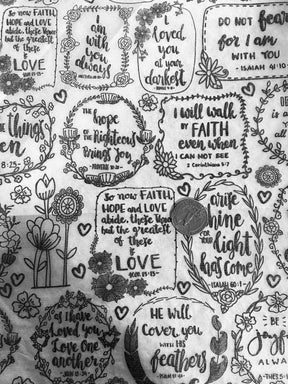 So now FAITH,
HOPE and LOVE
abide, these three
but the greatest
of these
is
LOVE
I COR. 13-13
I
am
with you
always
I
loved
you
at your
darkest
ROMANS 5:8
DO NOT fear
for I am
WITH YOU
- ISAIAH 41:10
things
8:25
THE
hope
OF THE
Righteous
Brings Joy
- PROVERBS 10:28
I will walk
BY FAITH
even when
I CAN NOT SEE
2 Corinthians 5:7
So now FAITH,
HOPE and LOVE
abide, these three
but the greatest
of these
is
LOVE
I COR. 13-13
arise
shine
FOR YOUR
light
has come
- ISAIAH 60:1 -
as I
have Loved
you
Love one
another
HE Will
Cover you
WITH HIS
feathers
BE
joyful
ALWAYS